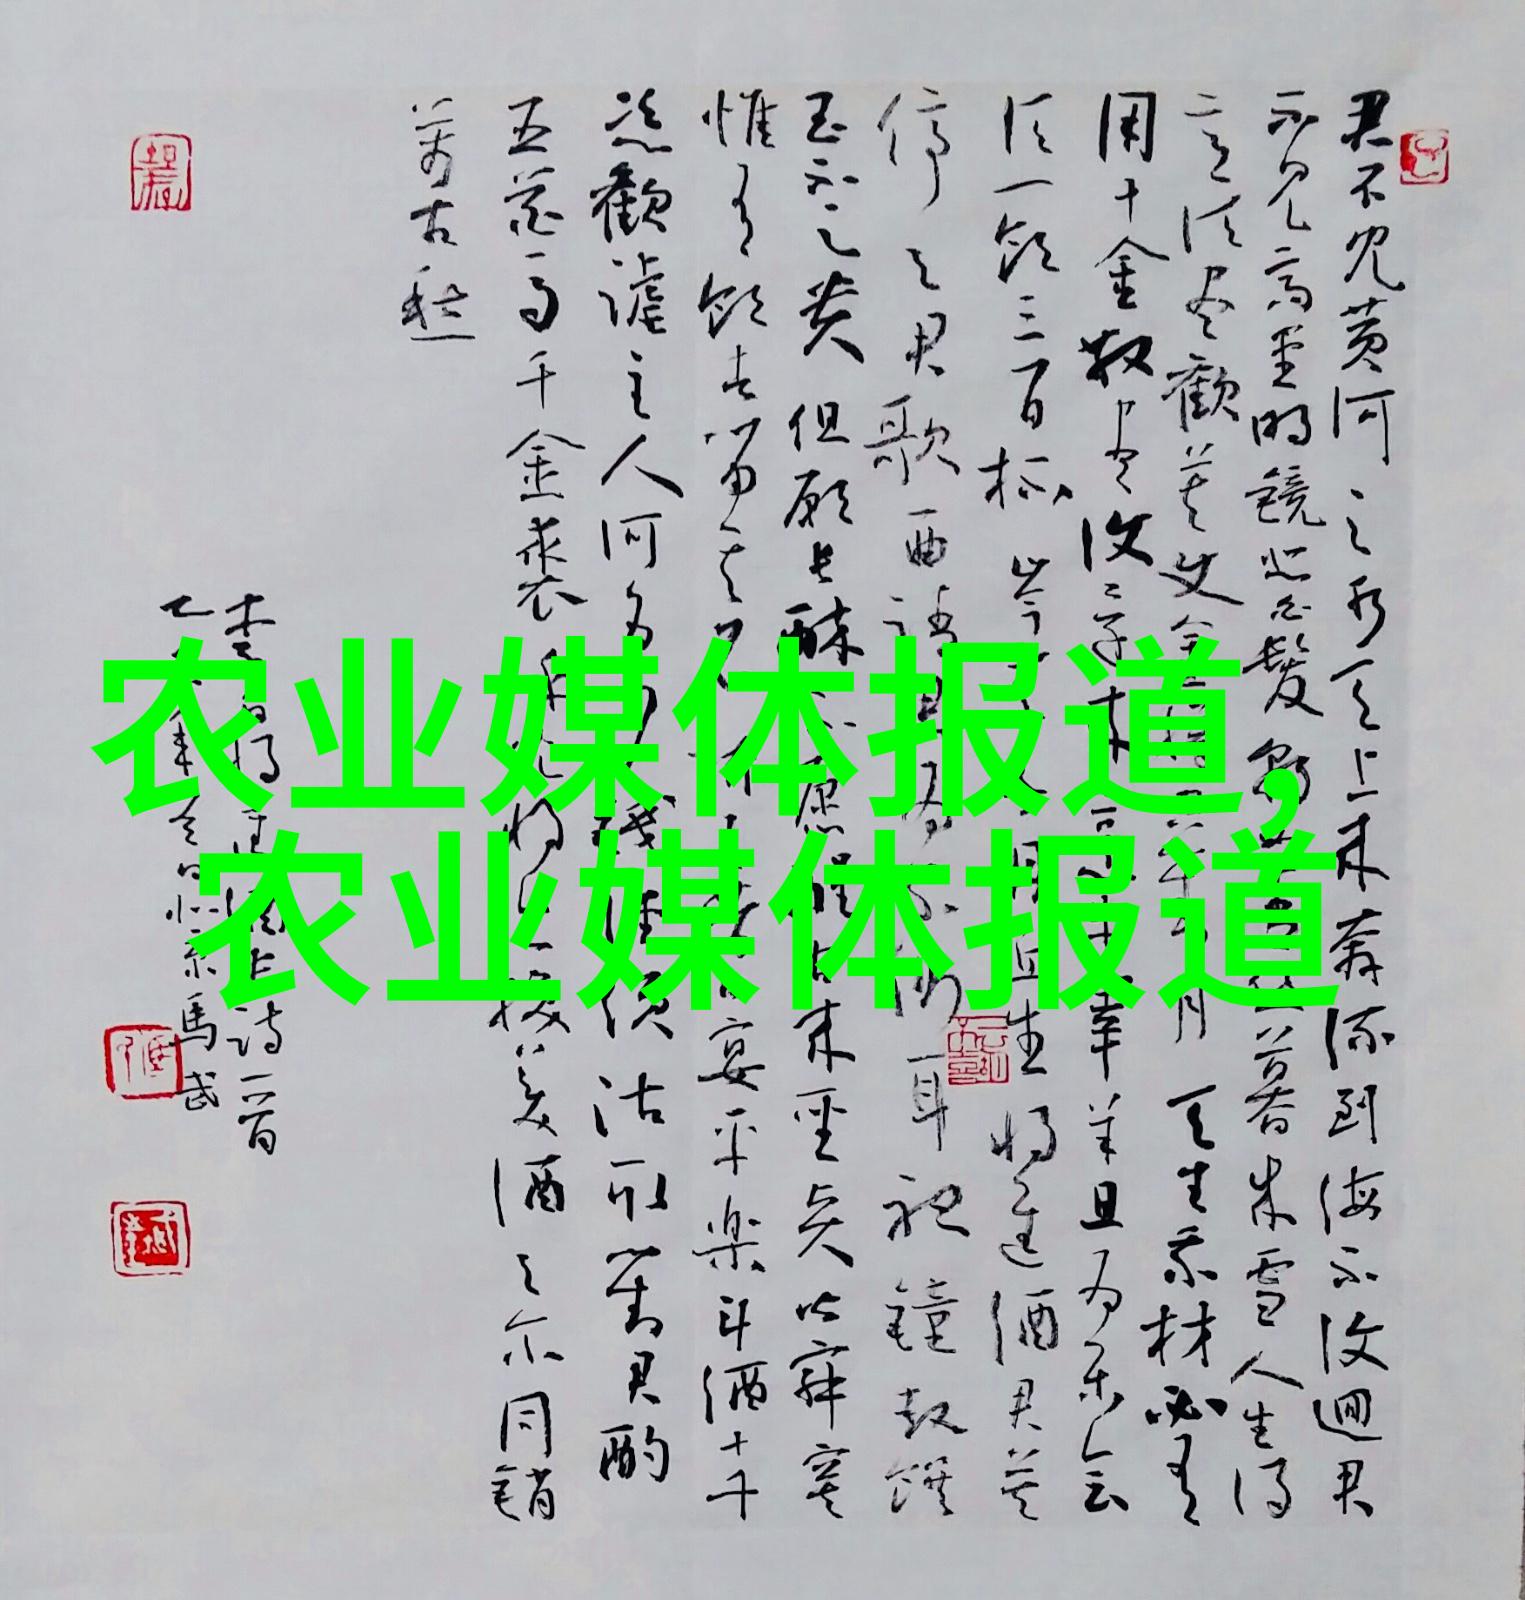 君不见黄河之水天上来奔流到海不復迴君
不见高堂明镜悲白髮朝如青丝暮成雪人生得
意须尽歡莫使金月天生我材必有
用千金散尽復还来宰羊且为乐会
须一饮三百杯岑丘生将进酒君莫
停与君歌一曲请君为耳听鐘鼓馔
玉不足贵但願长醉不愿醒古来圣贤皆寂寞
惟有饮者留其宴平楽斗酒十千
恣歡谑主人何为钱径须沽取对君酌
五花马千金裘呼儿将出换美酒与尔同销
萬古愁
李白将进酒诗一首
馬武
农业媒体报道,
农业媒体报道